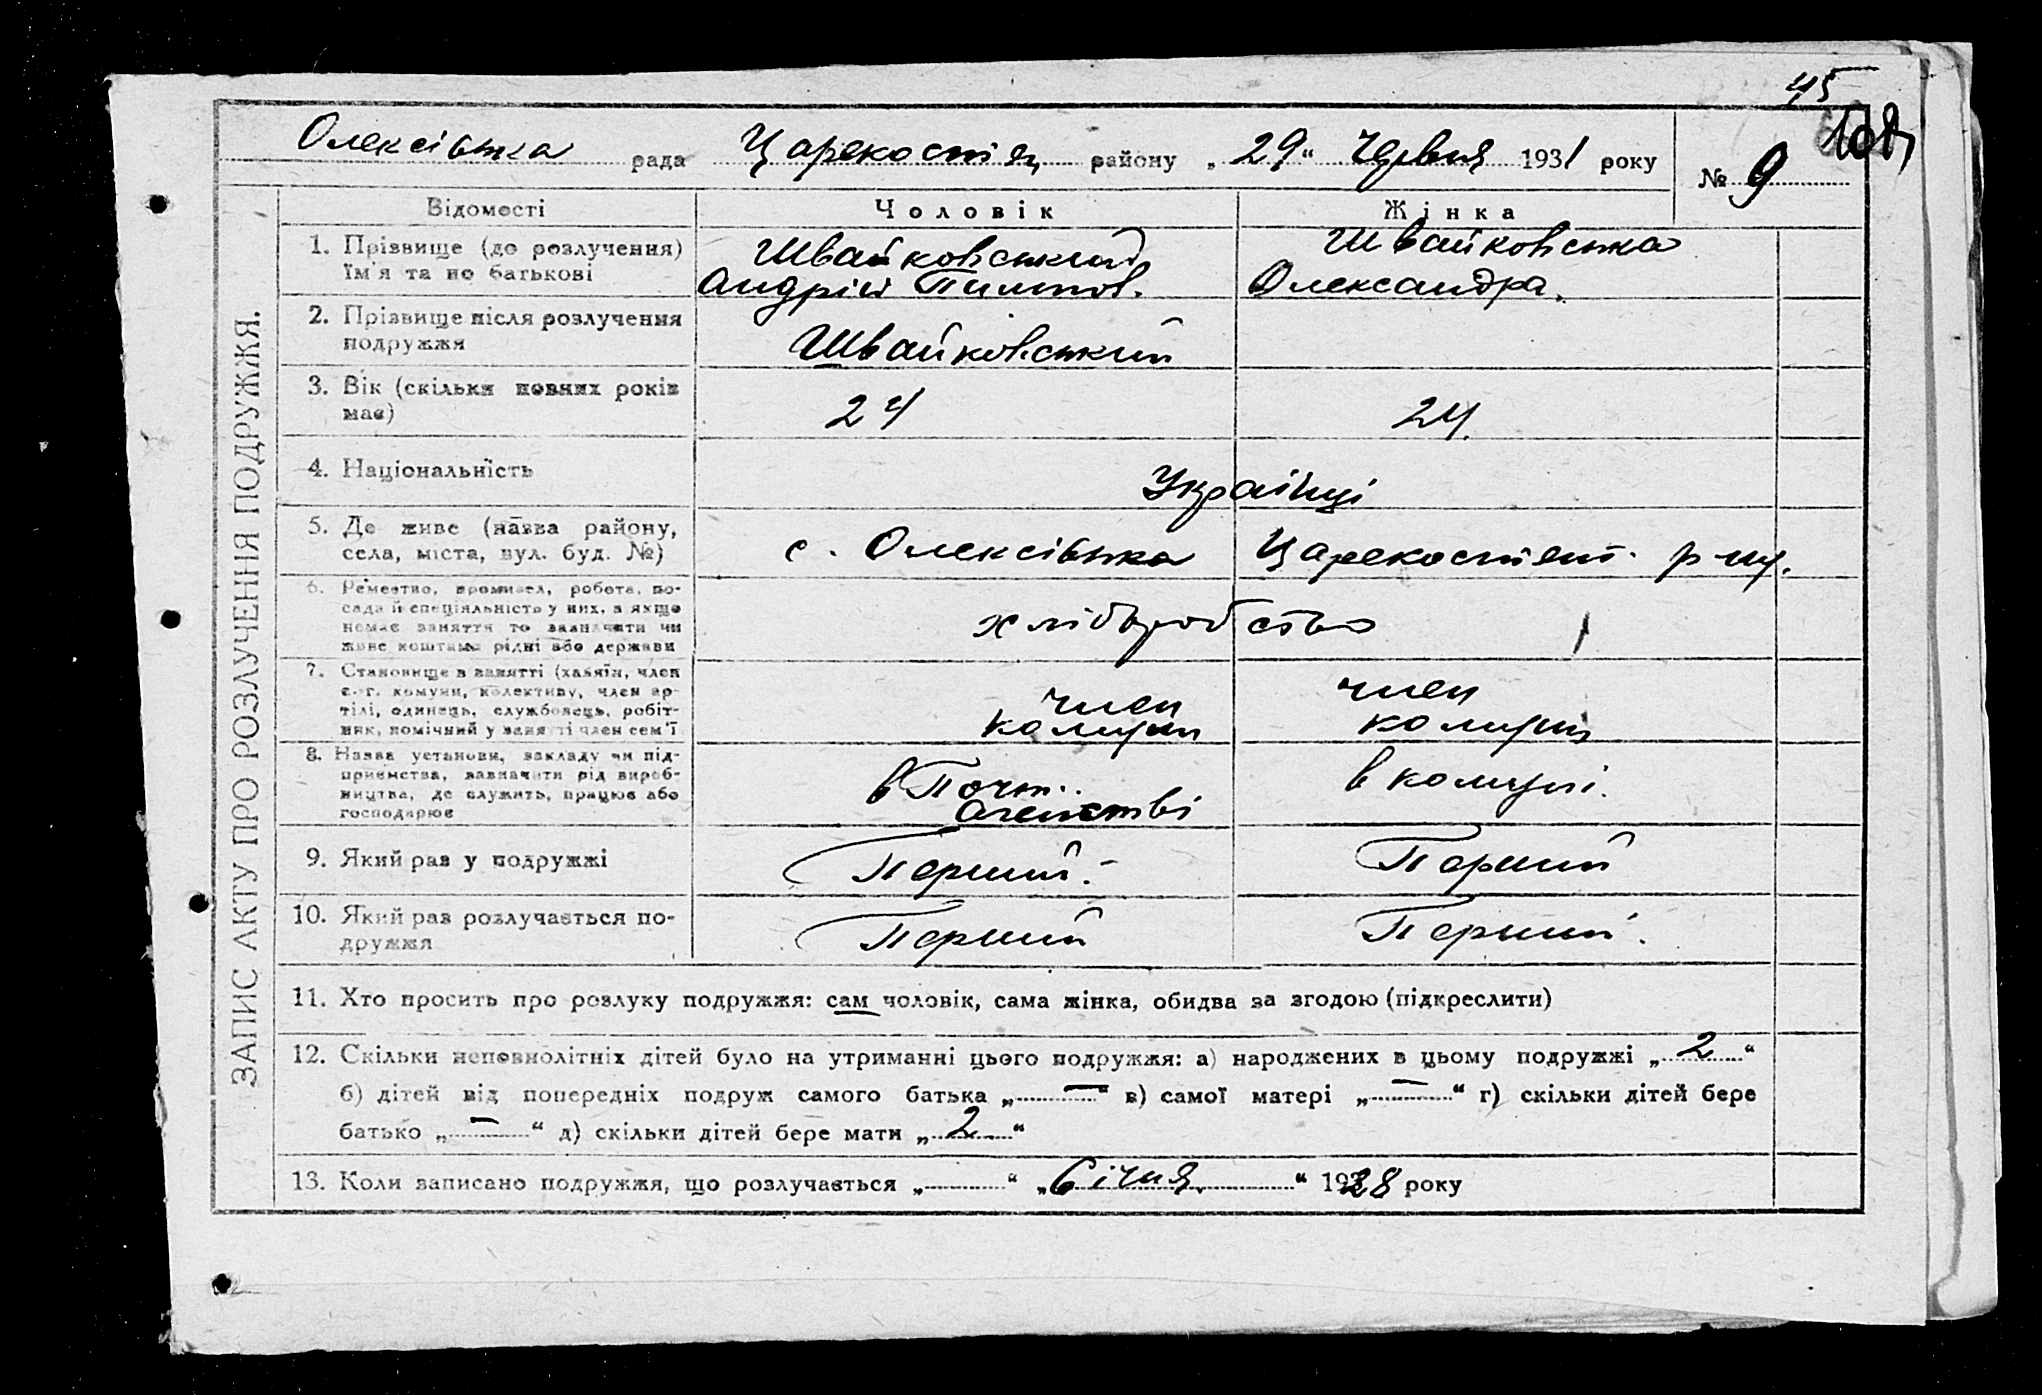 45
Олексівська рада Царекостян району „29“ Червня 1931 року
№ 9
ЗАПИС АКТУ ПРО РОЗЛУЧЕННЯ ПОДРУЖЖЯ.
Відомості Чоловік Жінка
1. Прізвище (до розлучення) Швайковський Швайковська
ім'я та по батькові Андрій Пилипов. Олександра.
2. Прізвище після розлучення
подружжя Швайковський
3. Вік (скільки повних років
має) 24 24
4. Національність Українці
5. Де живе (назва району,
села, міста, вул. буд. №) с. Олексівка Царекостянт. р-ну.
6. Ремество, промисел, робота, по-
сада й спеціяльність у них, а якщо
немає заняття то зазначити чи хліборобство
живе коштами рідні або держави
7. Становище в занятті (хазяїн, член
с.-г. комуни, колективу, член ар- член член
тілі, одинець, службовець, робіт- комуни комуни
ник, помічний у занятті член сем'ї
8. Назва установи, закладу чи під-
приємства, зазначити рід вироб- в Почт. в комуні.
ництва, де служить, працює або Агентстві
господарює
9. Який раз у подружжі Перший. Перший
10. Який раз розлучається по-
дружжя Перший Перший.
11. Хто просить про розлуку подружжя: сам чоловік, сама жінка, обидва за згодою (підкреслити)
12. Скільки неповнолітніх дітей було на утриманні цього подружжя: а) народжених в цьому подружжі „2“
б) дітей від попередніх подруж самого батька „—“ в) самої матері „—“ г) скільки дітей бере
батько „—“ д) скільки дітей бере мати „2“
13. Коли записано подружжя, що розлучається „ “ „Січня.“ 1928 року